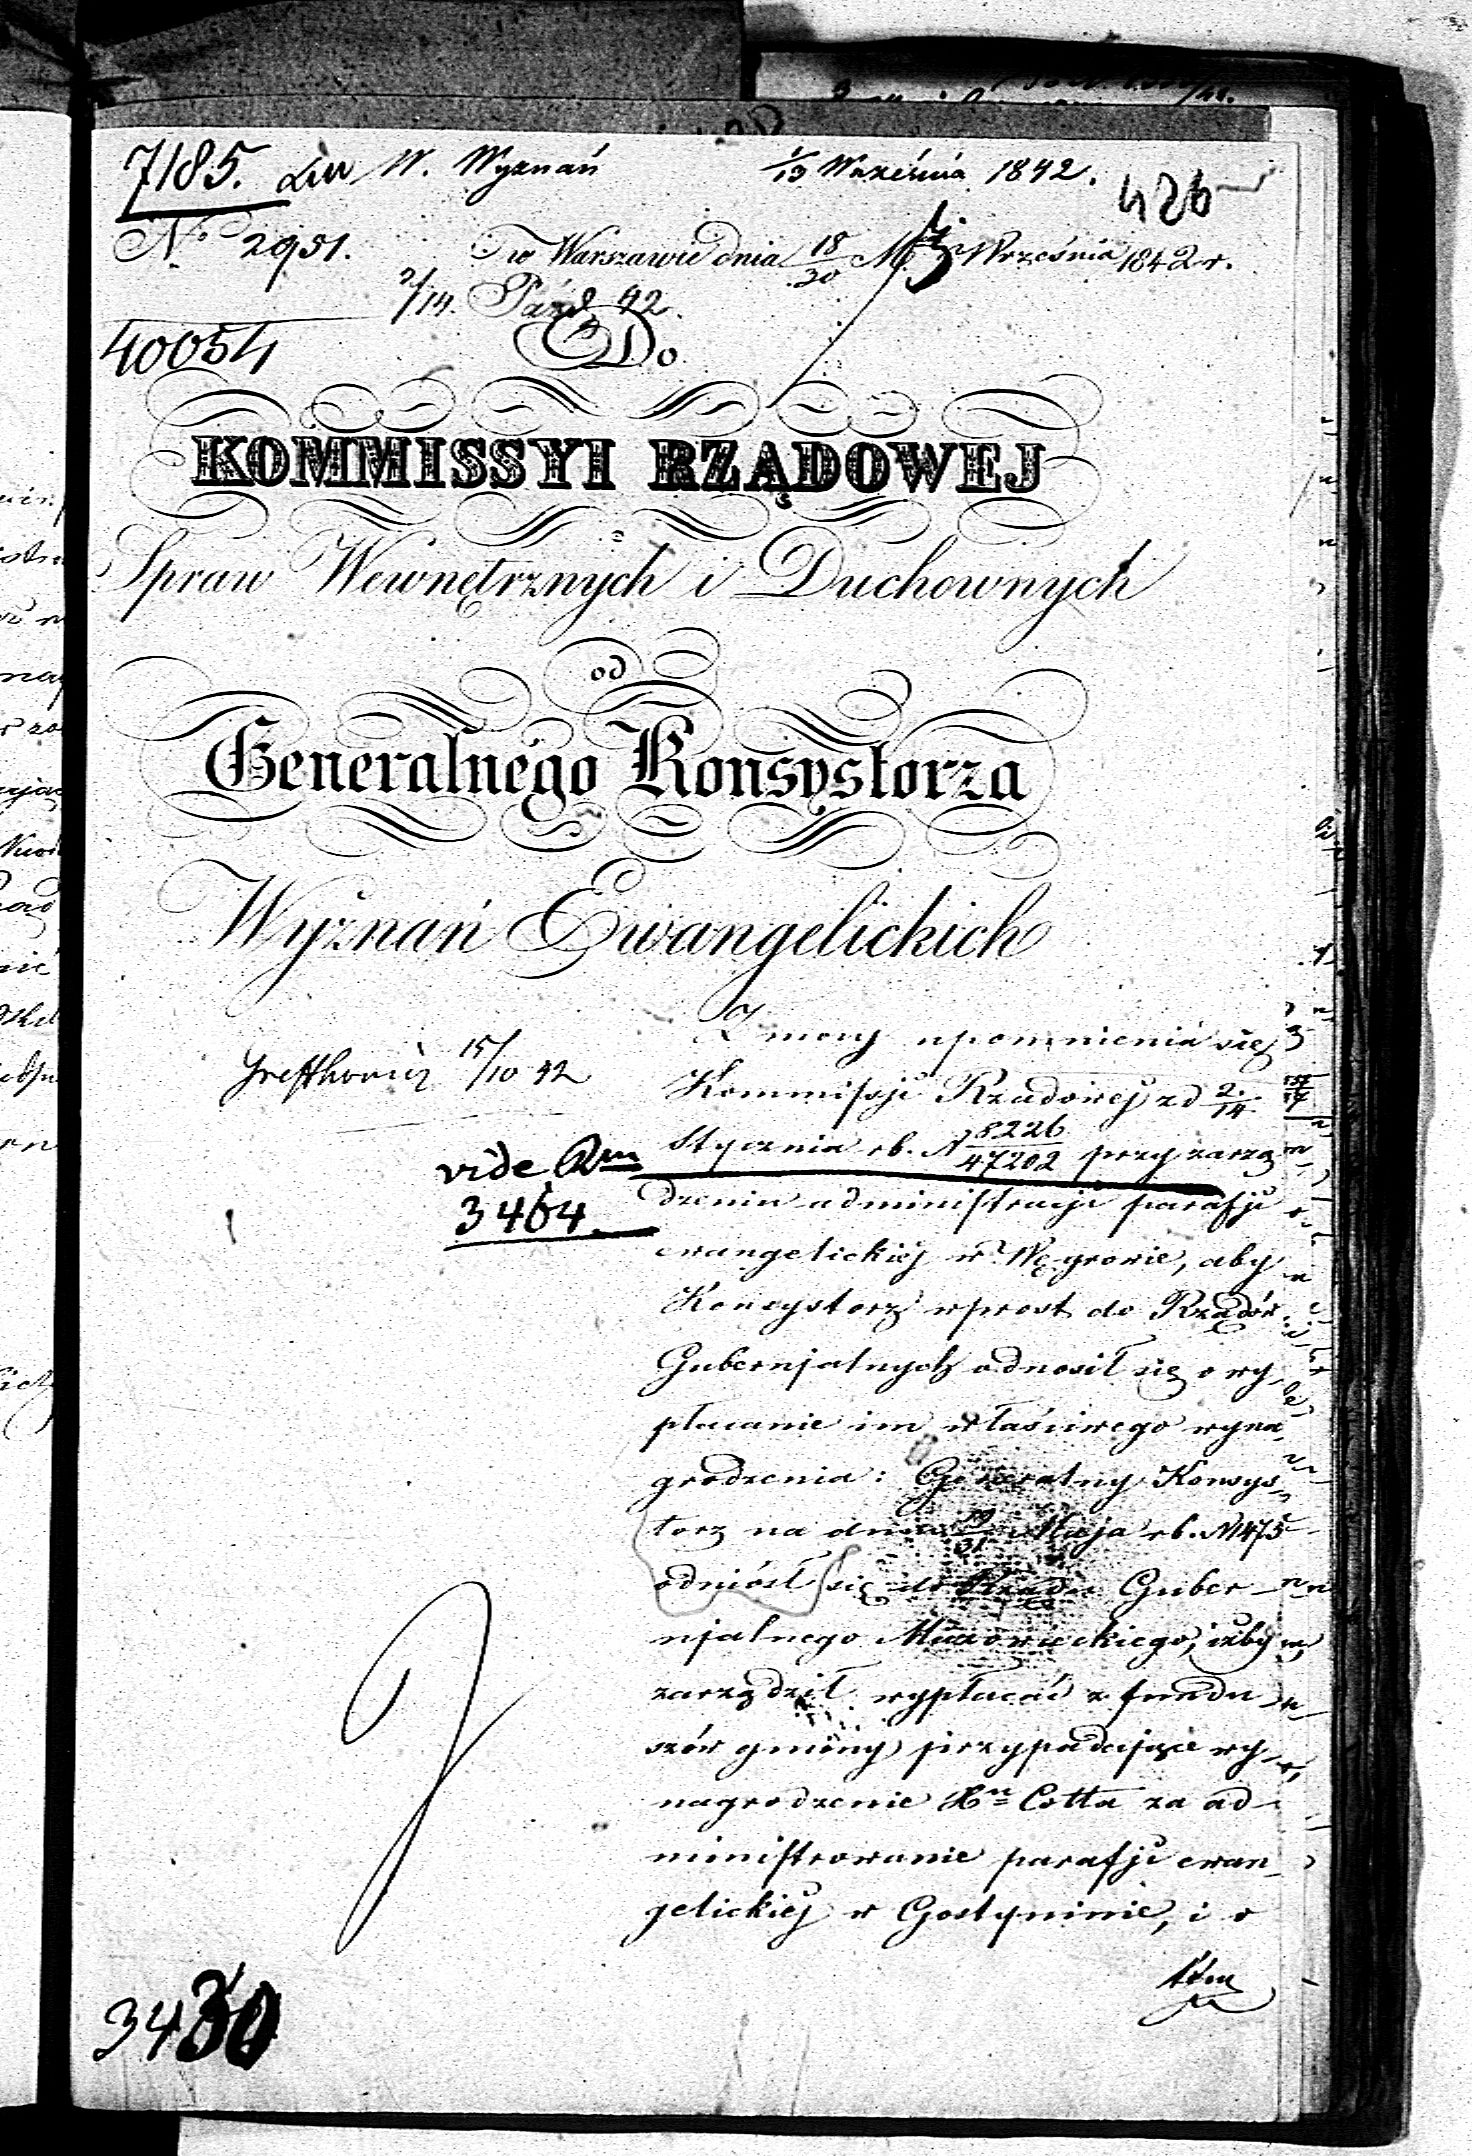 7185. W. Wyznań 1/13 Września 1842. 426
No 2951. w Warszawie dnia 18/30 M. Września 1842 r.
2/14. Paźd 42.
40054 Do
KOMMISSYI RZĄDOWEJ
Spraw Wewnętrznych i Duchownych
od
Generalnego Konsystorza
Wyznań Ewangelickich
Z mocy upomnienia się
15/10 42 Kommissji Rządowej z d 2./14.
Stycznia r.b. N 8226/47202 przy zarzą
vide
3464. dzeniu administracji parafji
ewangelickiej w Węgrowie, aby
Konsystorz wprost do Rządów
Gubernjalnych odnosił się o wy
płacanie im właściwego wyna
grodzenia: Generalny Konsys
torz na dniu 19/31 Maja r.b. N 1475
odniósł się do Rządu Guber
njalnego Mazowieckiego, iżby
zarządził wypłacać z fundu
szów gminy przypadające wy
nagrodzenie Xu Cotta za ad
ministrowanie parafji ewan
gelickiej w Gostyninie, i o
tém
3430